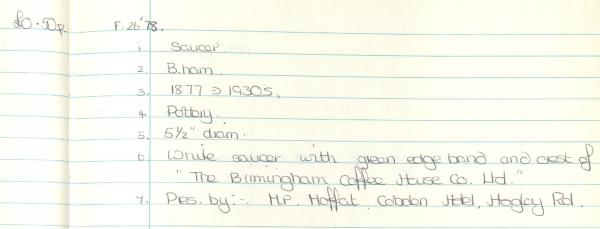 £0.50p. F.26'78.
1. Saucer.
2. B.ham.
3. 1877 → 1930s.
4. Pottery.
5. 5½" diam.
6. White saucer with green edge band and crest of
"The Birmingham Coffee House Co. Ltd."
7. Pres. by:- H.P. Moffat, Cobden Hotel, Hagley Rd.